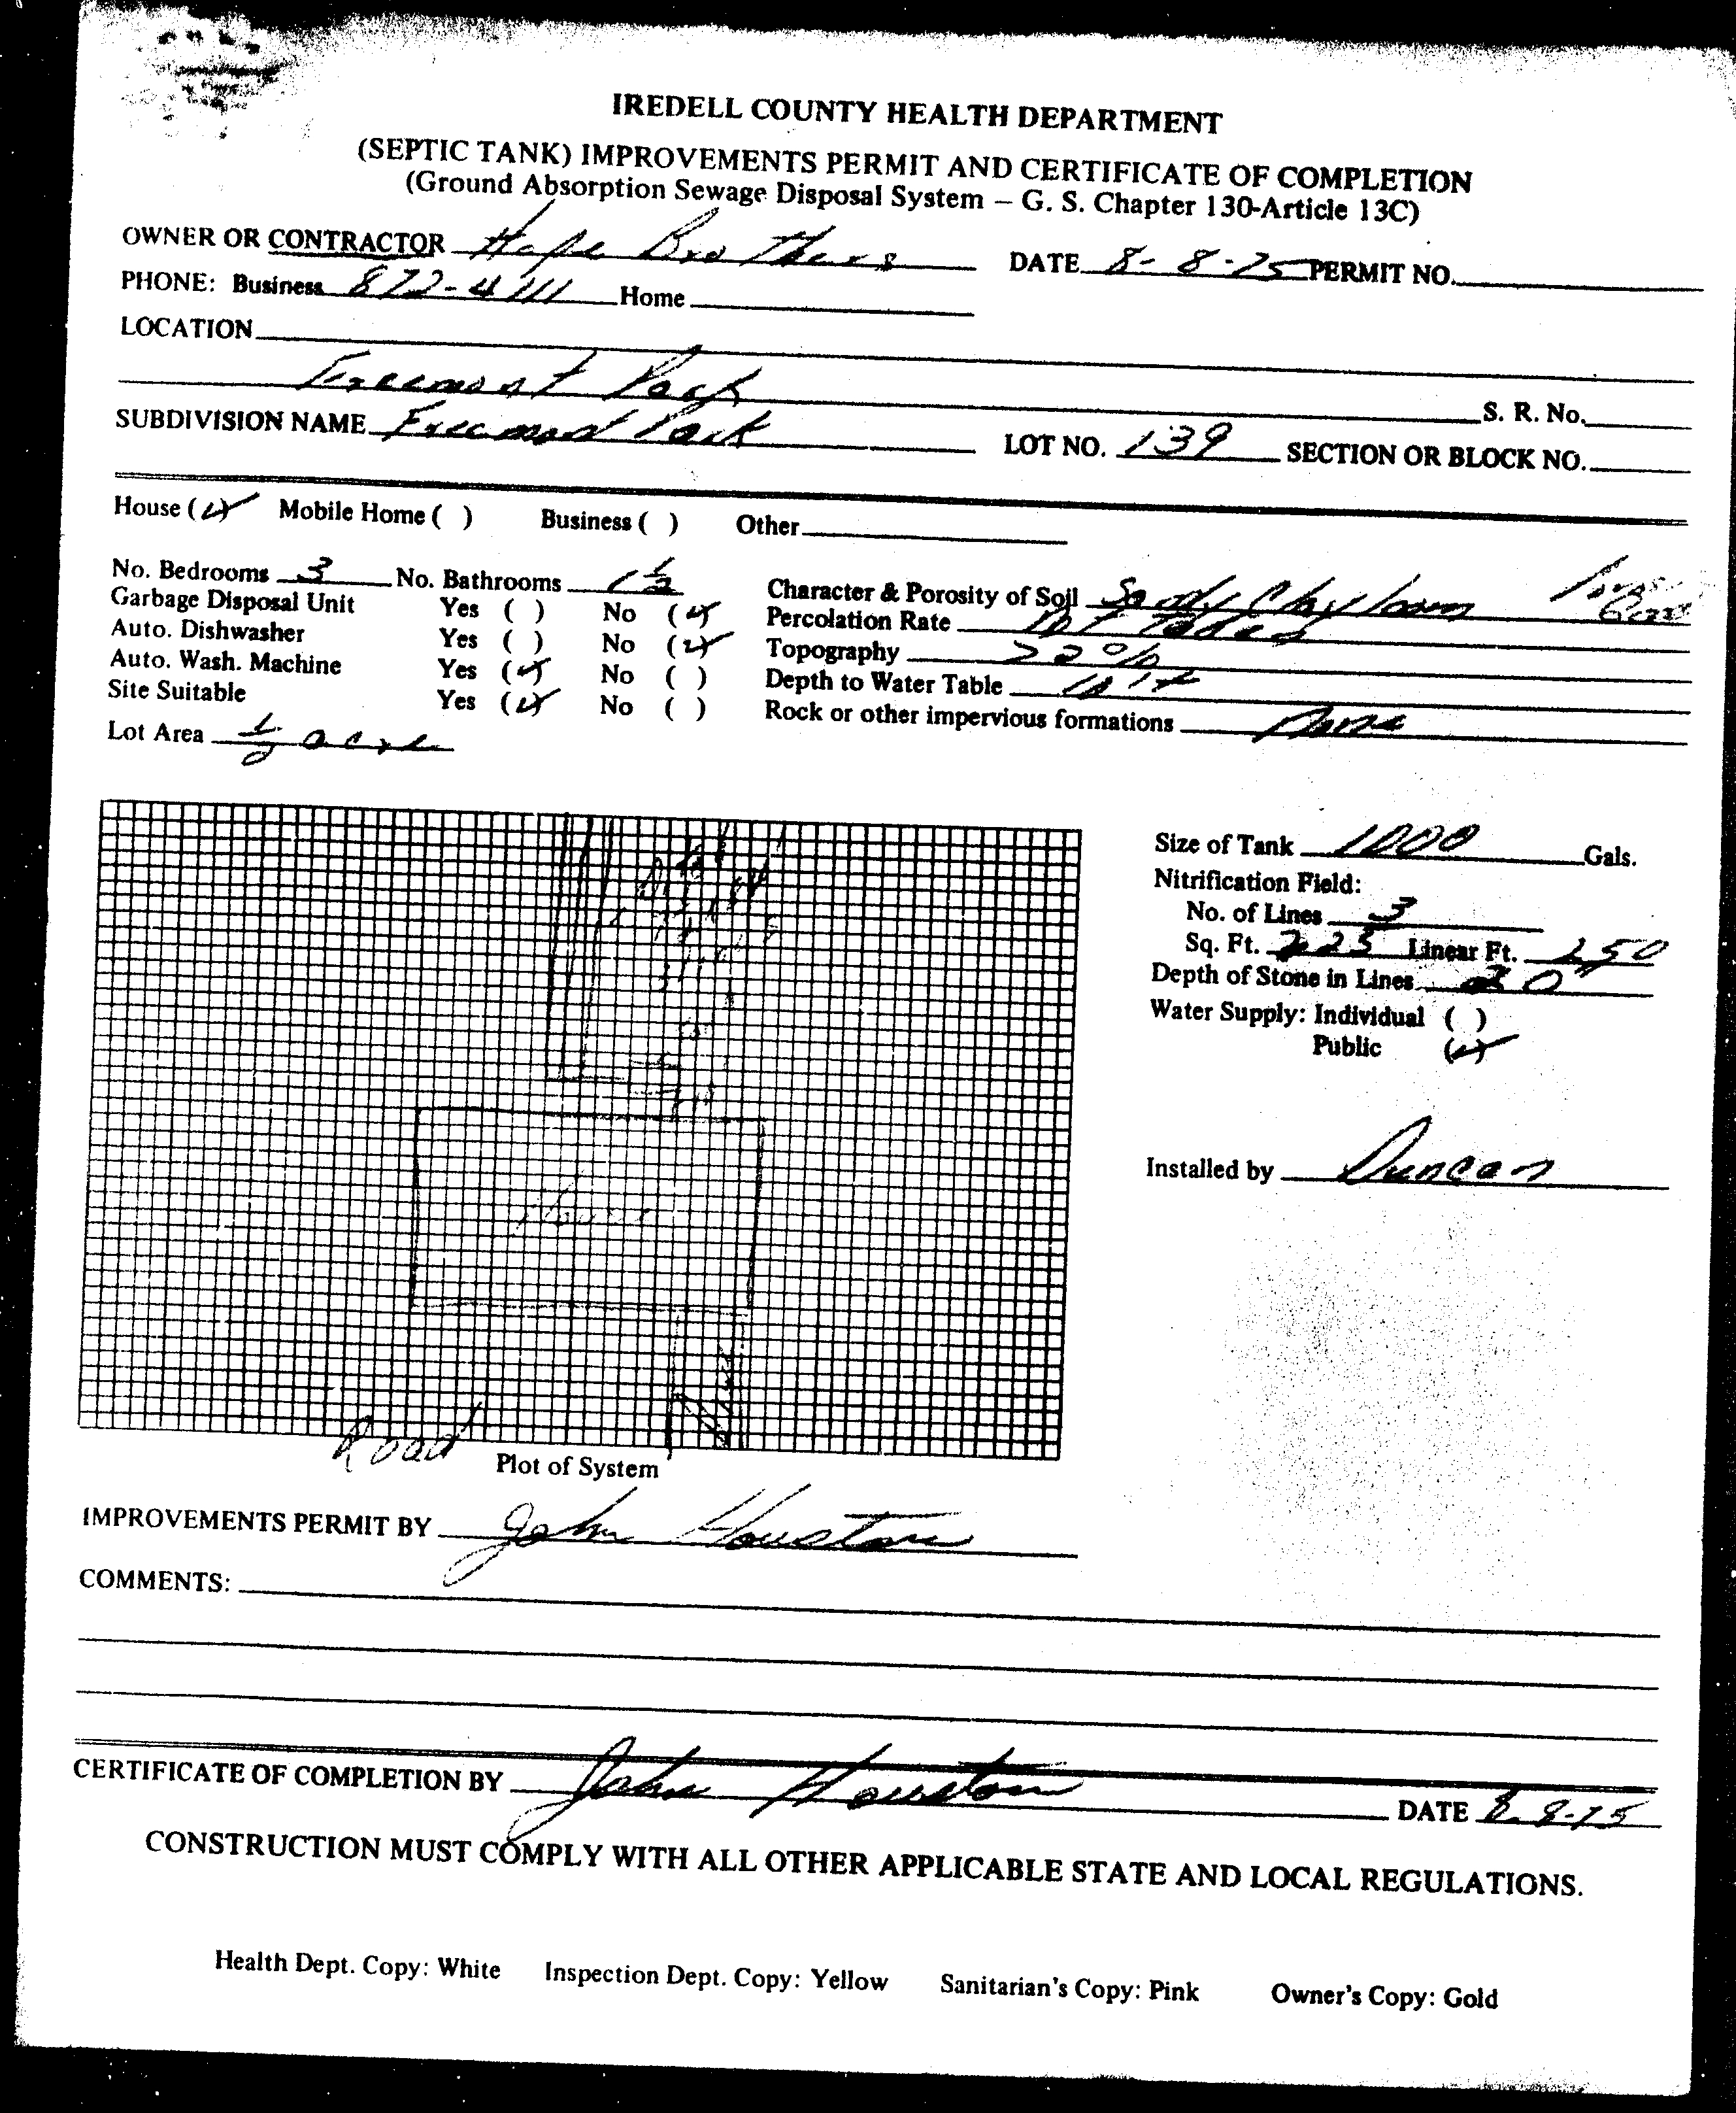 IREDELL COUNTY HEALTH DEPARTMENT
(SEPTIC TANK) IMPROVEMENTS PERMIT AND CERTIFICATE OF COMPLETION
(Ground Absorption Sewage Disposal System – G. S. Chapter 130-Article 13C)
OWNER OR CONTRACTOR Hope Brothers DATE 8-8-75 PERMIT NO.
PHONE: Business 872-4111 Home
LOCATION
Freemont Park S. R. No.
SUBDIVISION NAME Freemont Park LOT NO. 139 SECTION OR BLOCK NO.
House (✓) Mobile Home ( ) Business ( ) Other
No. Bedrooms 3 No. Bathrooms 1 1/2 Character & Porosity of Soil Sandy Clay loam
Garbage Disposal Unit Yes ( ) No (✓) Percolation Rate not taken
Auto. Dishwasher Yes ( ) No (✓) Topography
Auto. Wash. Machine Yes (✓) No ( ) Depth to Water Table
Site Suitable Yes (✓) No ( ) Rock or other impervious formations None
Lot Area 1/2 acre
Size of Tank 1000 Gals.
Nitrification Field:
No. of Lines 3
Sq. Ft. Linear Ft.
Depth of Stone in Lines
Water Supply: Individual ( )
Public (✓)
House
Installed by Duncan
Road
Plot of System
IMPROVEMENTS PERMIT BY John Houston
COMMENTS:
CERTIFICATE OF COMPLETION BY John Houston
DATE 8-8-75
CONSTRUCTION MUST COMPLY WITH ALL OTHER APPLICABLE STATE AND LOCAL REGULATIONS.
Health Dept. Copy: White Inspection Dept. Copy: Yellow Sanitarian's Copy: Pink Owner's Copy: Gold